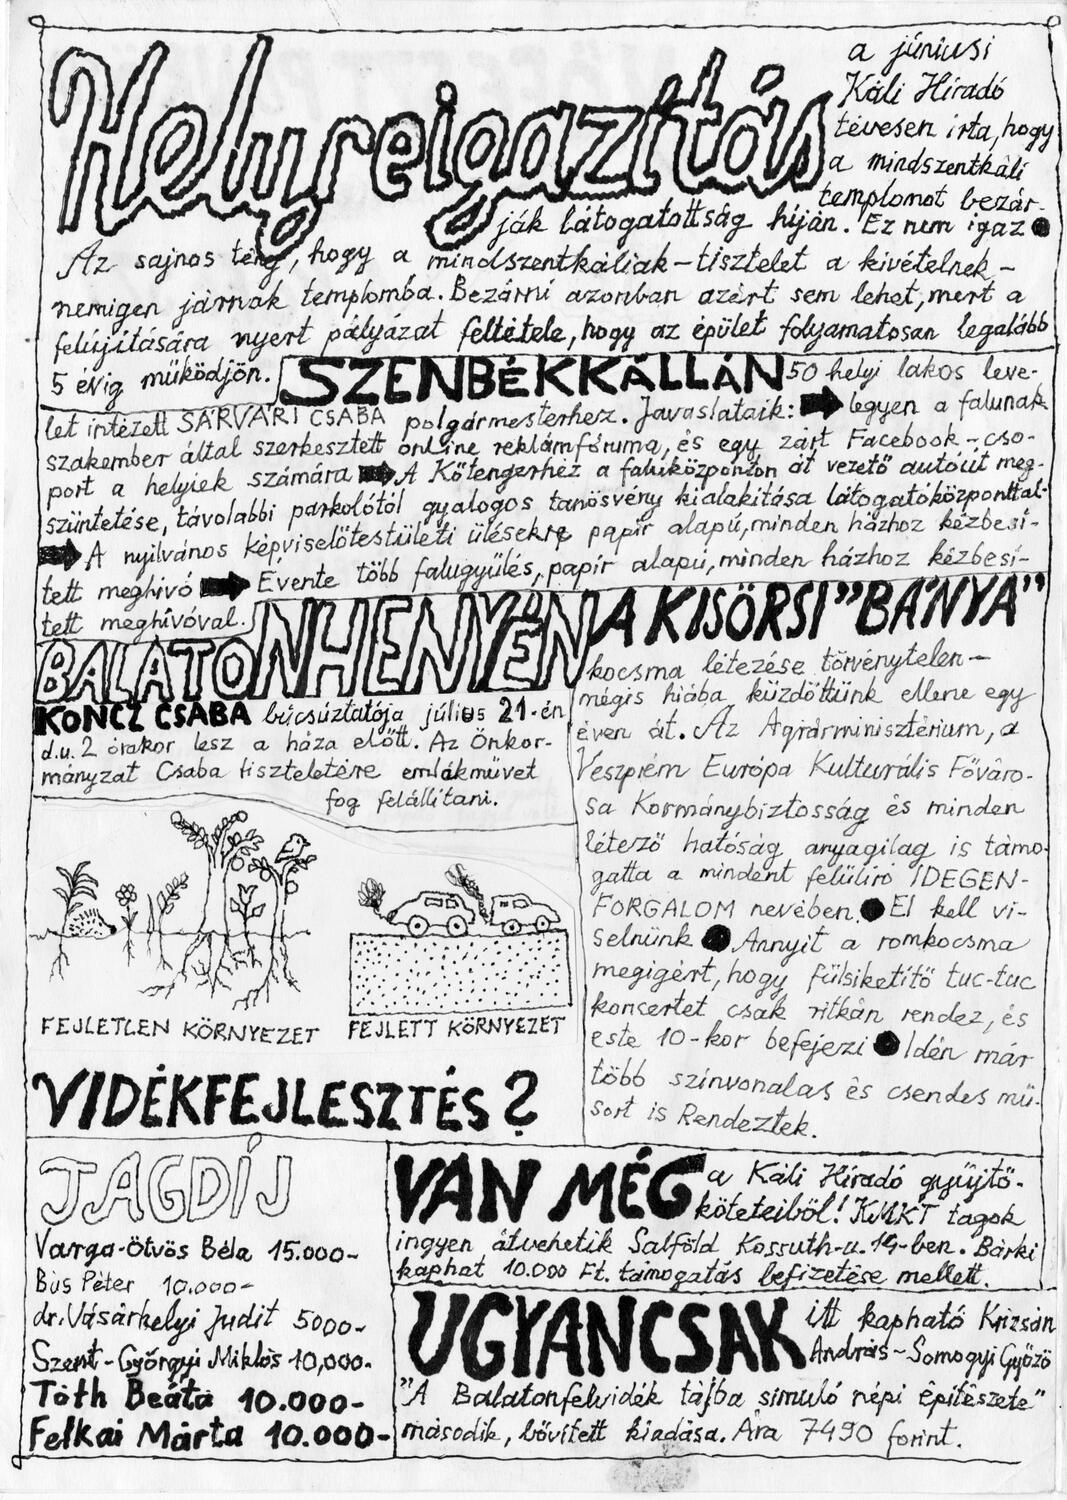 Helyreigazítás
a júniusi
Káli Híradó
tévesen írta, hogy
a mindszentkáli
templomot bezár-
ják látogatottság híján. Ez nem igaz
Az sajnos tény, hogy a mindszentkáliak – tisztelet a kivételnek –
nemigen járnak templomba. Bezárni azonban azért sem lehet, mert a
felújítására nyert pályázat feltétele, hogy az épület folyamatosan legalább
5 évig működjön.
SZENBÉKKÁLLÁN 50 helyi lakos leve-
let intézett SÁRVÁRI CSABA polgármesterhez. Javaslataik: legyen a falunak
szakember által szerkesztett online reklámfóruma, és egy zárt Facebook-cso-
port a helyiek számára A Kőtengerhez a faluközponton át vezető autóút meg-
szüntetése, távolabbi parkolótól gyalogos tanösvény kialakítása látogatóközponttal
A nyilvános képviselőtestületi ülésekre papír alapú, minden házhoz kézbesí-
tett meghívó Évente több falugyűlés, papír alapú, minden házhoz kézbesí-
tett meghívóval.
BALATONHENYÉN
KONCZ CSABA búcsúztatója július 21-én
d.u. 2 órakor lesz a háza előtt. Az Önkor-
mányzat Csaba tiszteletére emlékművet
fog felállítani.
A KISŐRSI "BÁNYA"
kocsma létezése törvénytelen –
mégis hiába küzdöttünk ellene egy
éven át. Az Agrárminisztérium, a
Veszprém Európa Kulturális Főváro-
sa Kormánybiztosság és minden
létező hatóság anyagilag is támo-
gatta a mindent felülíró IDEGEN-
FORGALOM nevében. El kell vi-
selnünk Annyit a romkocsma
megígért, hogy fülsiketítő tuc-tuc
koncertet csak ritkán rendez, és
este 10-kor befejezi Idén már
több színvonalas és csendes mű-
sort is Rendeztek.
FEJLETLEN KÖRNYEZET
FEJLETT KÖRNYEZET
VIDÉKFEJLESZTÉS?
TAGDÍJ
Varga-Ötvös Béla 15.000-
Bús Péter 10.000-
dr. Vásárhelyi Judit 5000-
Szent-Györgyi Miklós 10,000.
Tóth Beáta 10.000-
Felkai Márta 10.000-
VAN MÉG a Káli Híradó gyűjtő-
köteteiből! KMKT tagok
ingyen átvehetik Salföld Kossuth-u. 19-ben. Bárki
kaphat 10.000 Ft. támogatás befizetése mellett.
UGYANCSAK itt kapható Krizsán
András – Somogyi Győző
"A Balatonfelvidék tájba simuló népi építészete"
második, bővített kiadása. Ára 7490 forint.